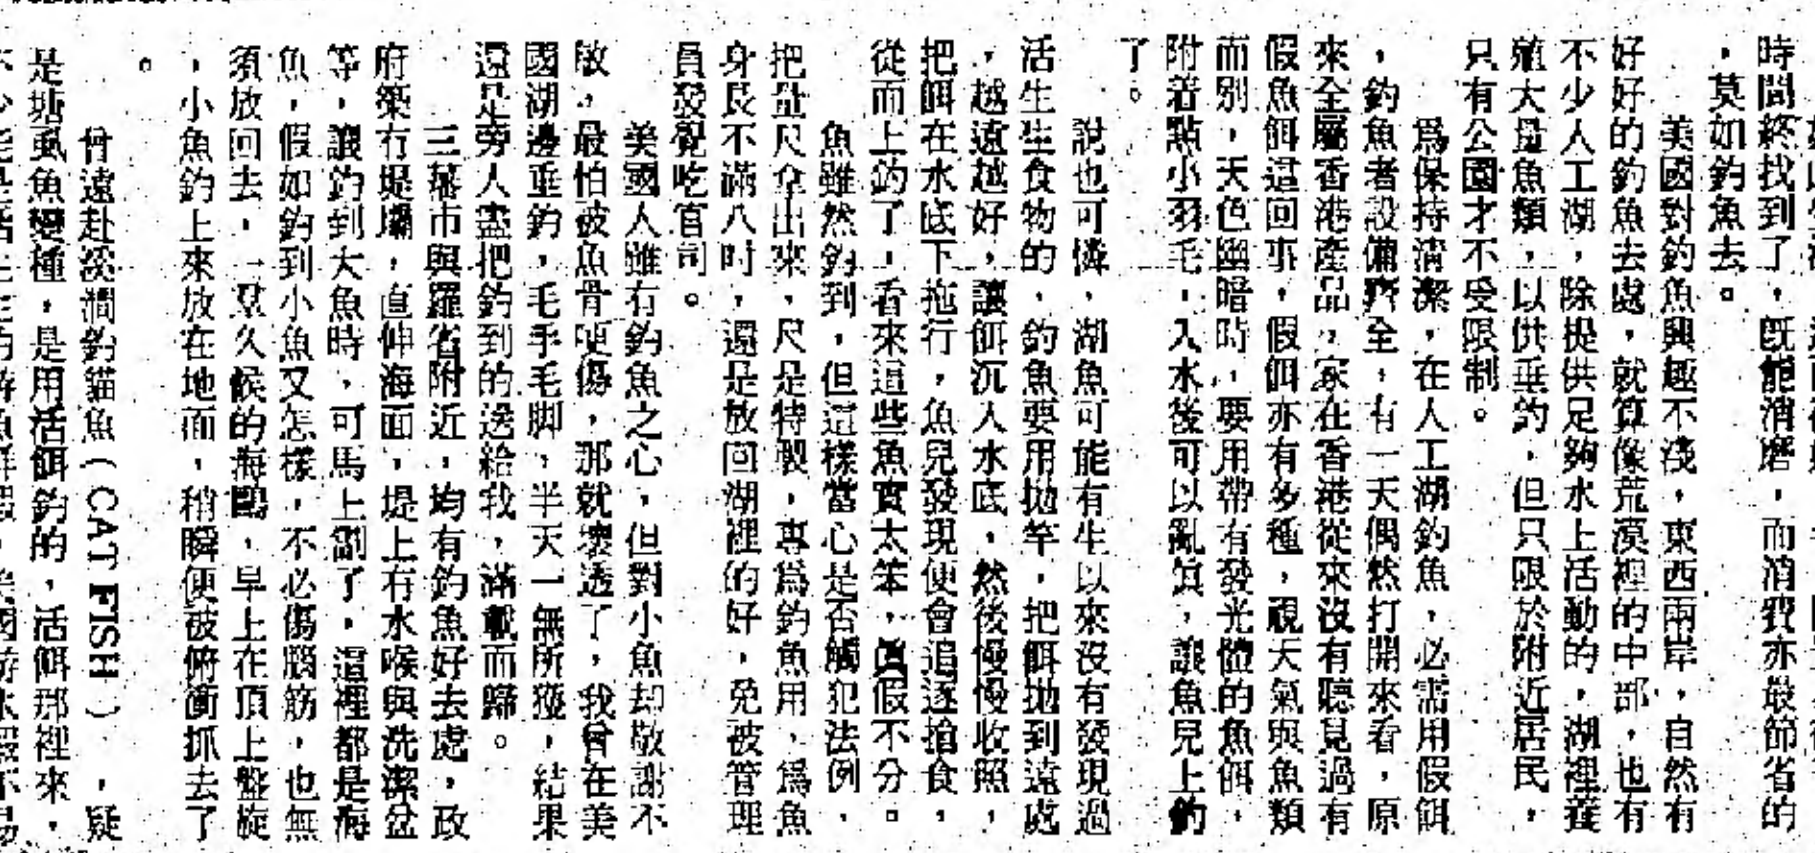 時間終找到了，既能消磨，而消費亦最節省的
，莫如釣魚去。
美國對釣魚興趣不淺，東西兩岸，自然有
好好的釣魚去處，就算像荒漠裡的中部，也有
不少人工湖，除提供足夠水上活動的，湖裡養
殖大量魚類，以供垂釣，但只限於附近居民，
只有公園才不受限制。
爲保持清潔，在人工湖釣魚，必需用假餌
，釣魚者設備齊全，有一天偶然打開來看，原
來全屬香港產品，家在香港從來沒有聽見過有
假魚餌這回事，假餌亦有多種，視天氣與魚類
而別，天色幽暗時，要用帶有發光體的魚餌，
附着點小羽毛，入水後可以亂眞，讓魚兒上釣
了。
說也可憐，湖魚可能有生以來沒有發現過
活生生食物的，釣魚要用拋竿，把餌拋到遠處
，越遠越好，讓餌沉入水底，然後慢慢收照，
把餌在水底下拖行，魚兒發現便會追逐搶食，
從而上釣了，看來這些魚實太笨，眞假不分。
魚雖然釣到，但這樣當心是否觸犯法例，
把量尺拿出來，尺是特製，專爲釣魚用，爲魚
身長不滿八吋，還是放回湖裡的好，免被管理
員發覺吃官司。
美國人雖有釣魚之心，但對小魚却敬謝不
敏，最怕被魚骨哽傷，那就壞透了，我曾在美
國湖邊垂釣，毛手毛脚，半天一無所獲，結果
還是旁人盡把釣到的送給我，滿載而歸。
三藩市與羅省附近，均有釣魚好去處，政
府築有堤壩，直伸海面，堤上有水喉與洗潔盆
等，讓釣到大魚時，可馬上劏了，這裡都是海
魚，假如釣到小魚又怎樣，不必傷腦筋，也無
須放回去，一眾久候的海鷗，早上在頂上盤旋
，小魚釣上來放在地面，稍瞬便被俯衝抓去了
。
曾遠赴溪澗釣貓魚（CAT FISH），疑
是塘虱魚變種，是用活餌釣的，活餌那裡來，